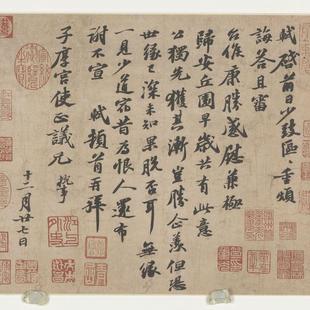 軾啟前日少致區〻重煩
誨答且審
台候康勝感慰兼極
歸安丘園早歲共有此意
公獨先獲其漸豈勝企羨但恐
世緣已深未知果脫否耳無緣
一見少道宿昔為恨人還布
謝不宣 軾頓首再拜
子厚宮使正議兄執事
十二月廿七日